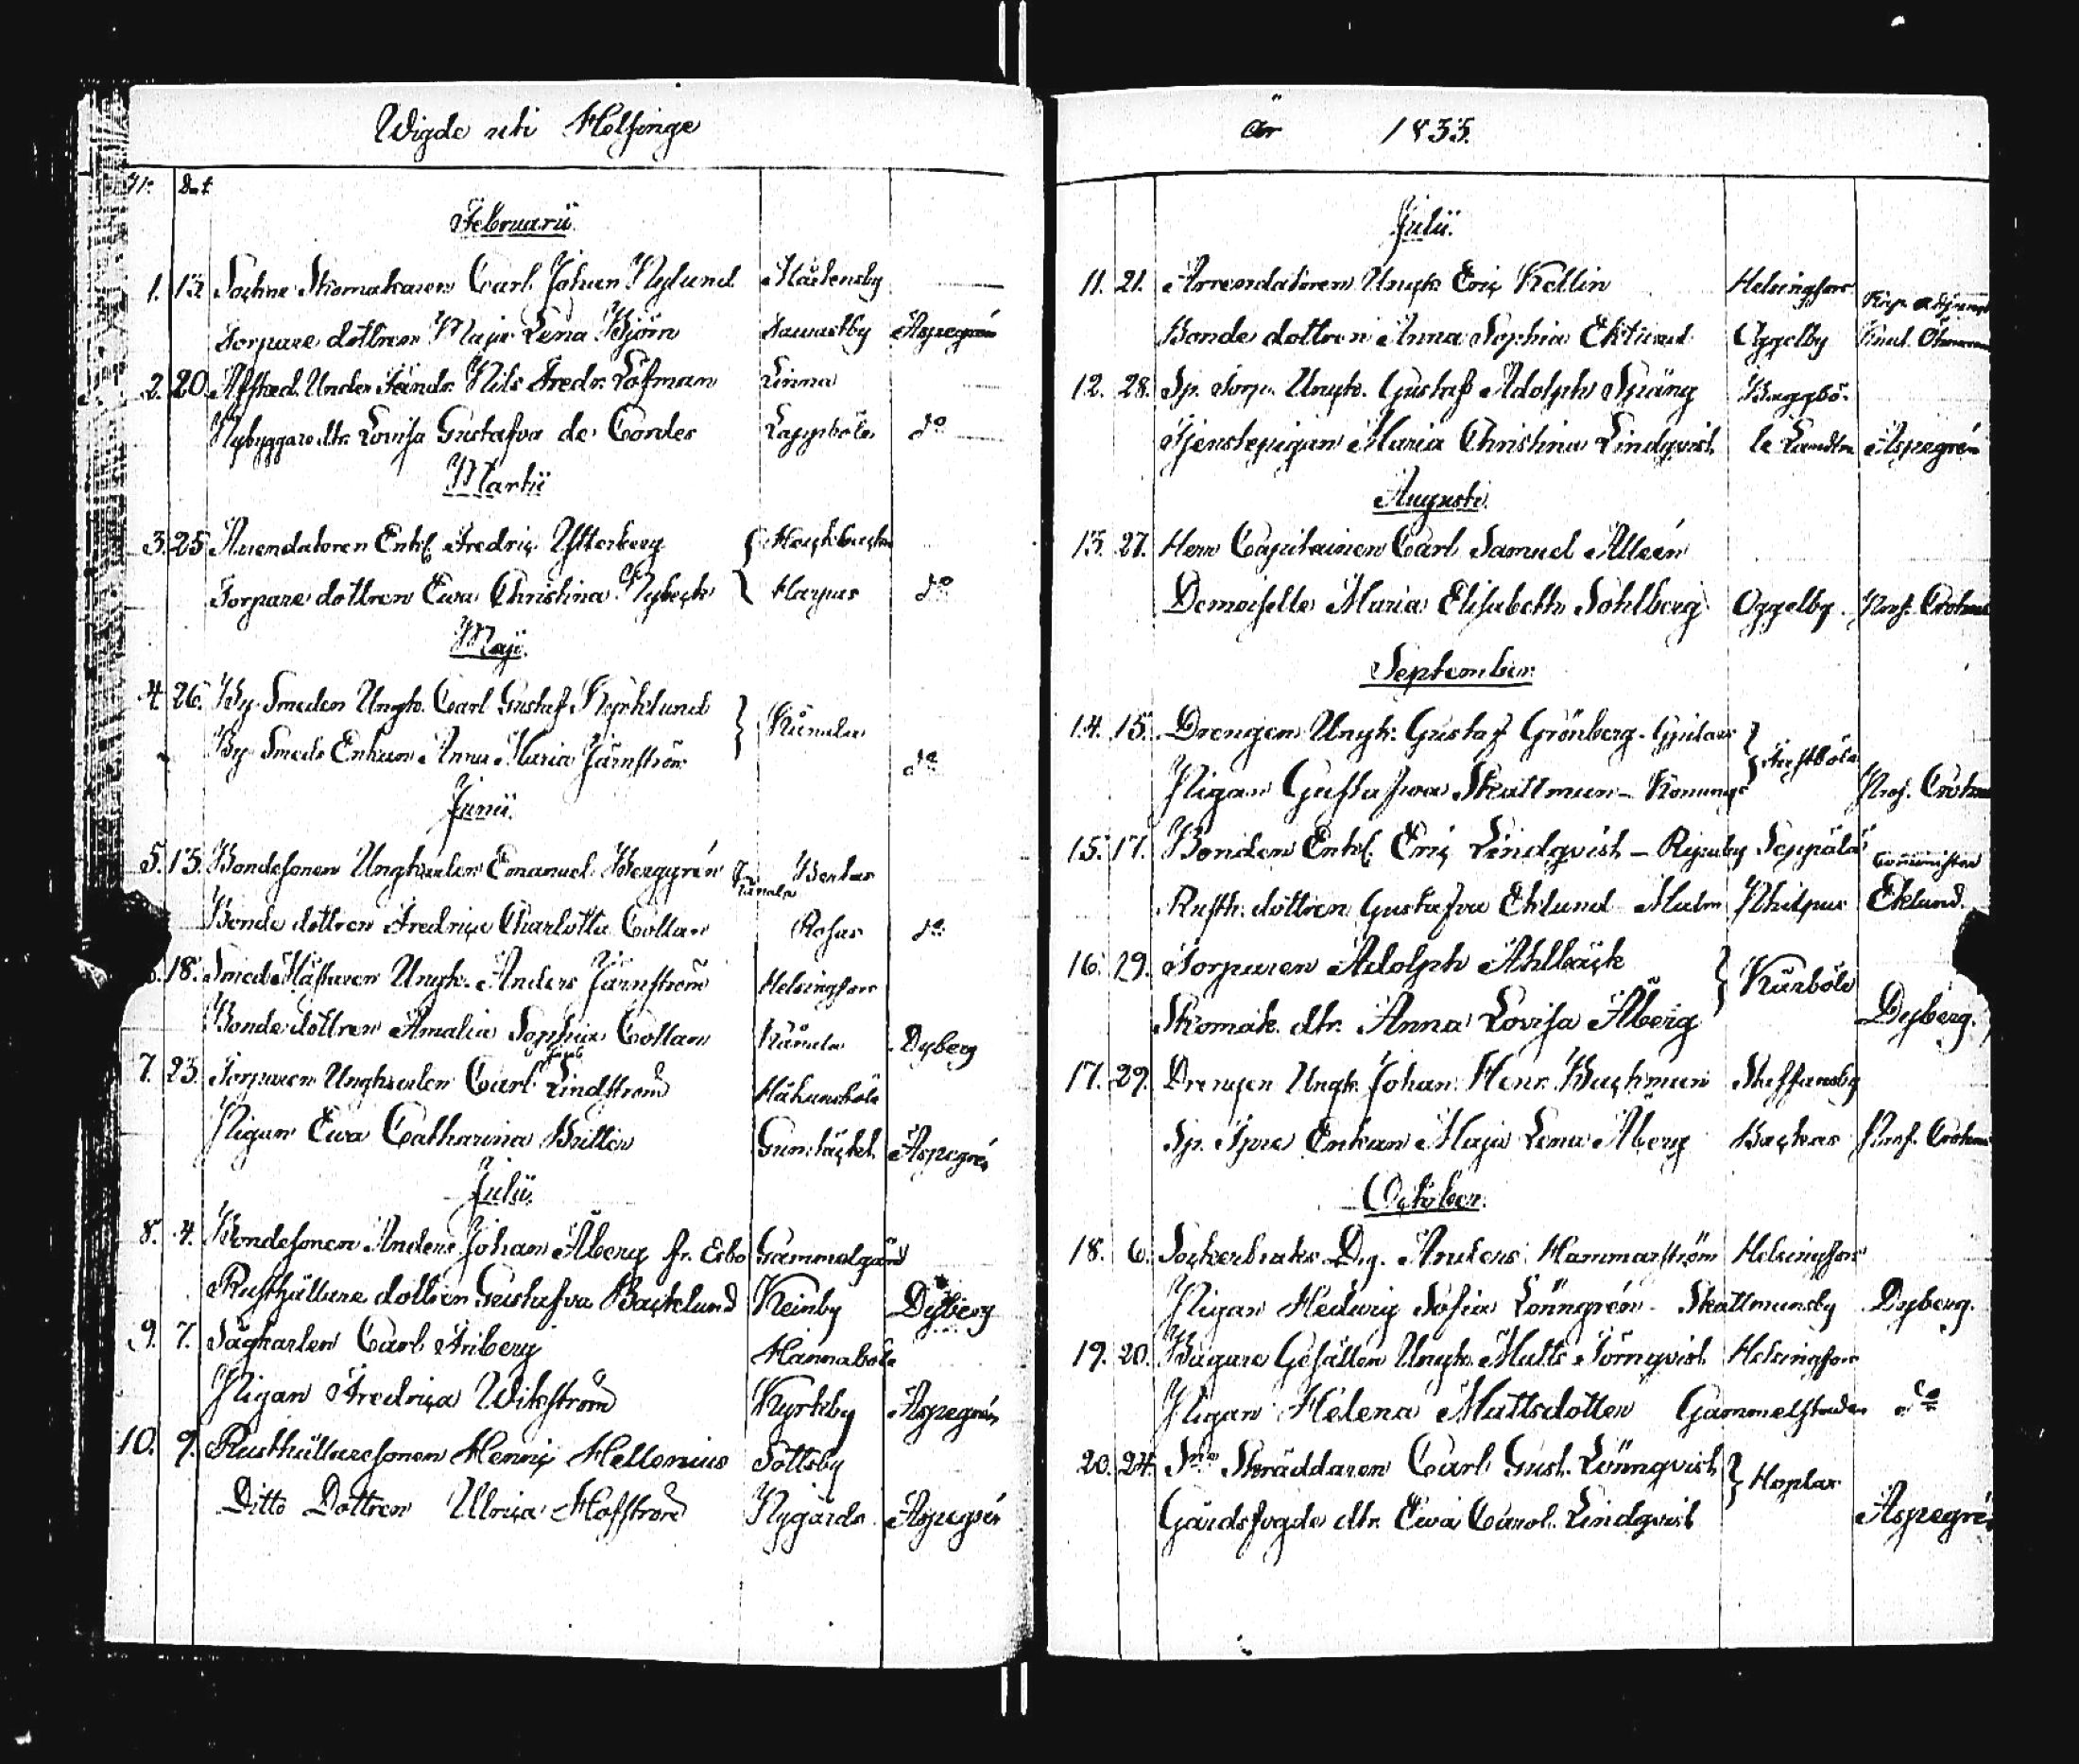 Wigde uti Helsinge
N:o Dat
Februarii.
1. 13 Sockne Skomakaren Carl Johan Nylund Mårtensby
Torpare dottren Maja Lena Björn Aspegrén
2. 20. Afsked. Under Nils Fredr. Löfman Linna
Nybyggare dtr Lovisa Gustafva de Cordes Lappböle do
Martii
3. 25 Arrendatoren Enkl. Fredric
Torpare dottren Ewa Christina Nybeck Harpas do
Maji.
4. 26. By Smeden Ungk. Carl Gustaf Kyrklund } Kånala
By Smeds Enkan Anna Maria Järnström do
Junii.
5. 13. Bondesonen Ungkarlen Emanuel Berggrén Kånala Bertas
Bonde dottren Fredrica Charlotta Collan Rosas do
18. Smed Mästaren Ungk. Anders Järnström Helsingfors
Bonde dottren Amalia Sophia Collan Kånala Dyberg
7. 23. Torparen Ungkarlen Carl Jacob Lindström Håkansböle
Pigan Ewa Catharina Brittin Gumtäckt Aspegrén
Julii.
8. 4. Bondesonen Anders Johan Åberg fr. Esbo Gammelgård
Rusthållare dottren Gustafva Backlund Keinby Dyberg
9. 7. Sågkarlen Carl Friberg Hannaböle
Pigan Fredrica Wikström Kyrkby Aspegrén
10. 9. Rusthållaresonen Henric Hellenius Sottsby
Ditto Dottren Ulrica Hofström Nygårds Aspegrén
år 1833.
Julii.
11. 21. Arrendatoren Ungk. Eric Kellin Helsingfors
Bonde dottren Anna Sophia Eklund Oggelby
12. 28. Sp. Torp. Ungk. Gustaf Adolph Spång Baggbö.
Tjenstepigan Maria Christina Lindqvist Aspegrén
Augusti.
13. 27. Herr Capitainen Carl Samuel Alleén
Demoiselle Maria Elisabeth Sohlberg Oggelby Prof. Crohns
September.
14. 15. Drengen Ungk. Gustaf Grönberg
Pigan Gustafwa Skattman Prof. Crohns
15. 17. Bonden Enkl. Eric Lindqvist Seppälä Comminister
Rusth. dottren Gustafva Eklund Malm Philpus Eklund.
16. 29. Torparen Adolph Ahlbäck } Kårböle
Skomak. dtr. Anna Lovisa Åberg Dyberg.
17. 29. Drengen Ungk. Johan Henr. Backman Staffansby
Sp. Enkan Maja Lena Åberg Backas Prof. Crohns
October.
18. 6. Sockerbruks Drg. Anders Hammarström Helsingfors
Pigan Hedwig Sofia Lönngrén Skattmansby Dyberg.
19. 20. Bagare Gesällen Ungk. Matts Törnqvist Helsingfors
Pigan Helena Mattsdotter Gammelstaden do
20. 24. Skräddaren Carl Gust. Lönnqvist } Hoplax
Gårdsfogde dtr. Ewa Carol. Lindqvist Aspegrén